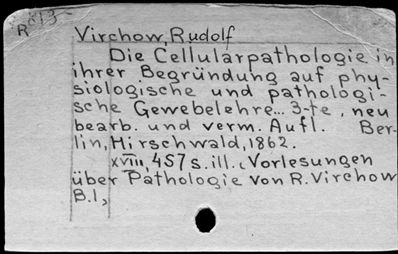 Virchow, Rudolf
Die Cellularpathologie in
ihrer Begründung auf phy-
siologische und pathologi-
sche Gewebelehre... 3-te, neu
bearb. und verm. Aufl. Ber-
lin, Hirschwald, 1862.
XVIII, 457 s. ill. (Vorlesungen
über Pathologie von R. Virchow
B. 1,